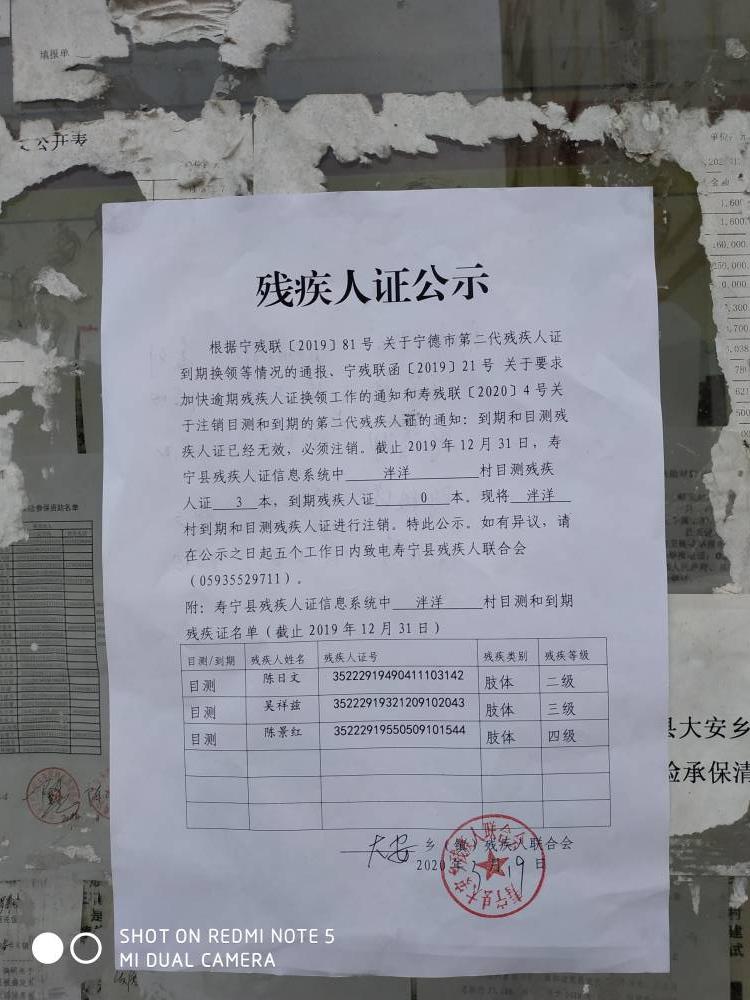 填报单
公开表
单位：元
残疾人证公示
根据宁残联〔2019〕81号 关于宁德市第二代残疾人证
到期换领等情况的通报、宁残联函〔2019〕21号 关于要求
加快逾期残疾人证换领工作的通知和寿残联〔2020〕4号关
于注销目测和到期的第二代残疾人证的通知：到期和目测残
疾人证已经无效，必须注销。截止2019年12月31日，寿
宁县残疾人证信息系统中 泮洋 村目测残疾
人证 3 本，到期残疾人证 0 本。现将 泮洋
村到期和目测残疾人证进行注销。特此公示。如有异议，请
在公示之日起五个工作日内致电寿宁县残疾人联合会
（05935529711）。
附：寿宁县残疾人证信息系统中 泮洋 村目测和到期
残疾证名单（截止2019年12月31日）
目测/到期 残疾人姓名 残疾人证号 残疾类别 残疾等级
目测 陈日文 35222919490411103142 肢体 二级
目测 吴祥兹 35222919321209102043 肢体 三级
目测 陈景红 35222919550509101544 肢体 四级
大安 乡（镇）残疾人联合会
2020年5月19日
县大安乡
险承保清
SHOT ON REDMI NOTE 5
MI DUAL CAMERA